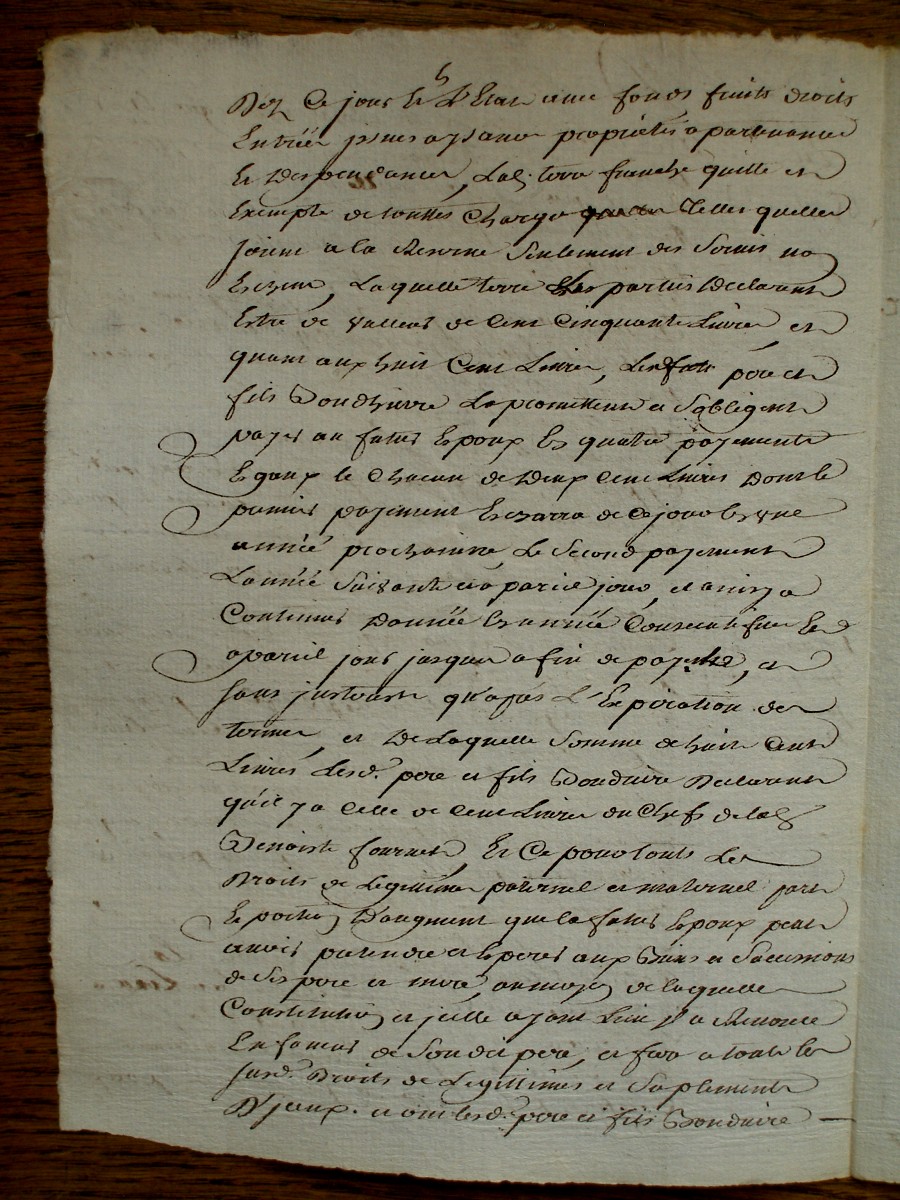 Dez Ce jour En L'Etat avec fonds fruits droits
Entrées yssues aysance propietés apartenances
Et Despendances, Lad. terre franche quitte et
Exempte de touttes Charges Telles quelles
soient a la Reserve Seulement des Servis no
Escheus, Laquelle terre Les parties Declarent
Estre de valleur de Cent Cinquante Livres, et
quant aux huit Cent Livres, Lesd. père et
fils Gondhivre La promettent et S'obligent
payer au futur Epoux En quatre payements
Egaux le Chacun de Deux Cent Livres Dont le
premier payement Escherra de Ce jour En une
année prochaine, Le Second payement
L'année Suivante a pareil jour, et ainsy a
Continuer D'année En année Consecutifve Et
a pareil jour jusques a fin de paye, et
sans qu'apres L'Expiration des
termes, et De Laquelle Somme de huit Cent
Livres Lesd. pere et fils Declarent
qu'il y a Celle de Cent Livres du Chef de lad.
Benoiste fournet, Et Ce pour touts Les
Droits de Legitime paternel et maternel part
Et portion D'augment que le futur Epoux peut
avoir pretendre et Esperer aux Biens et Sucessions
de Ses pere et mere, au moyen de laquelle
Constitution et jcelle ayant Lieu Il a Renoncé
En faveur de Son dit pere, et fera a tout Les
susd. Droits de Legitimes et Suplement
D'jceux. et ont lesd. pere et fils